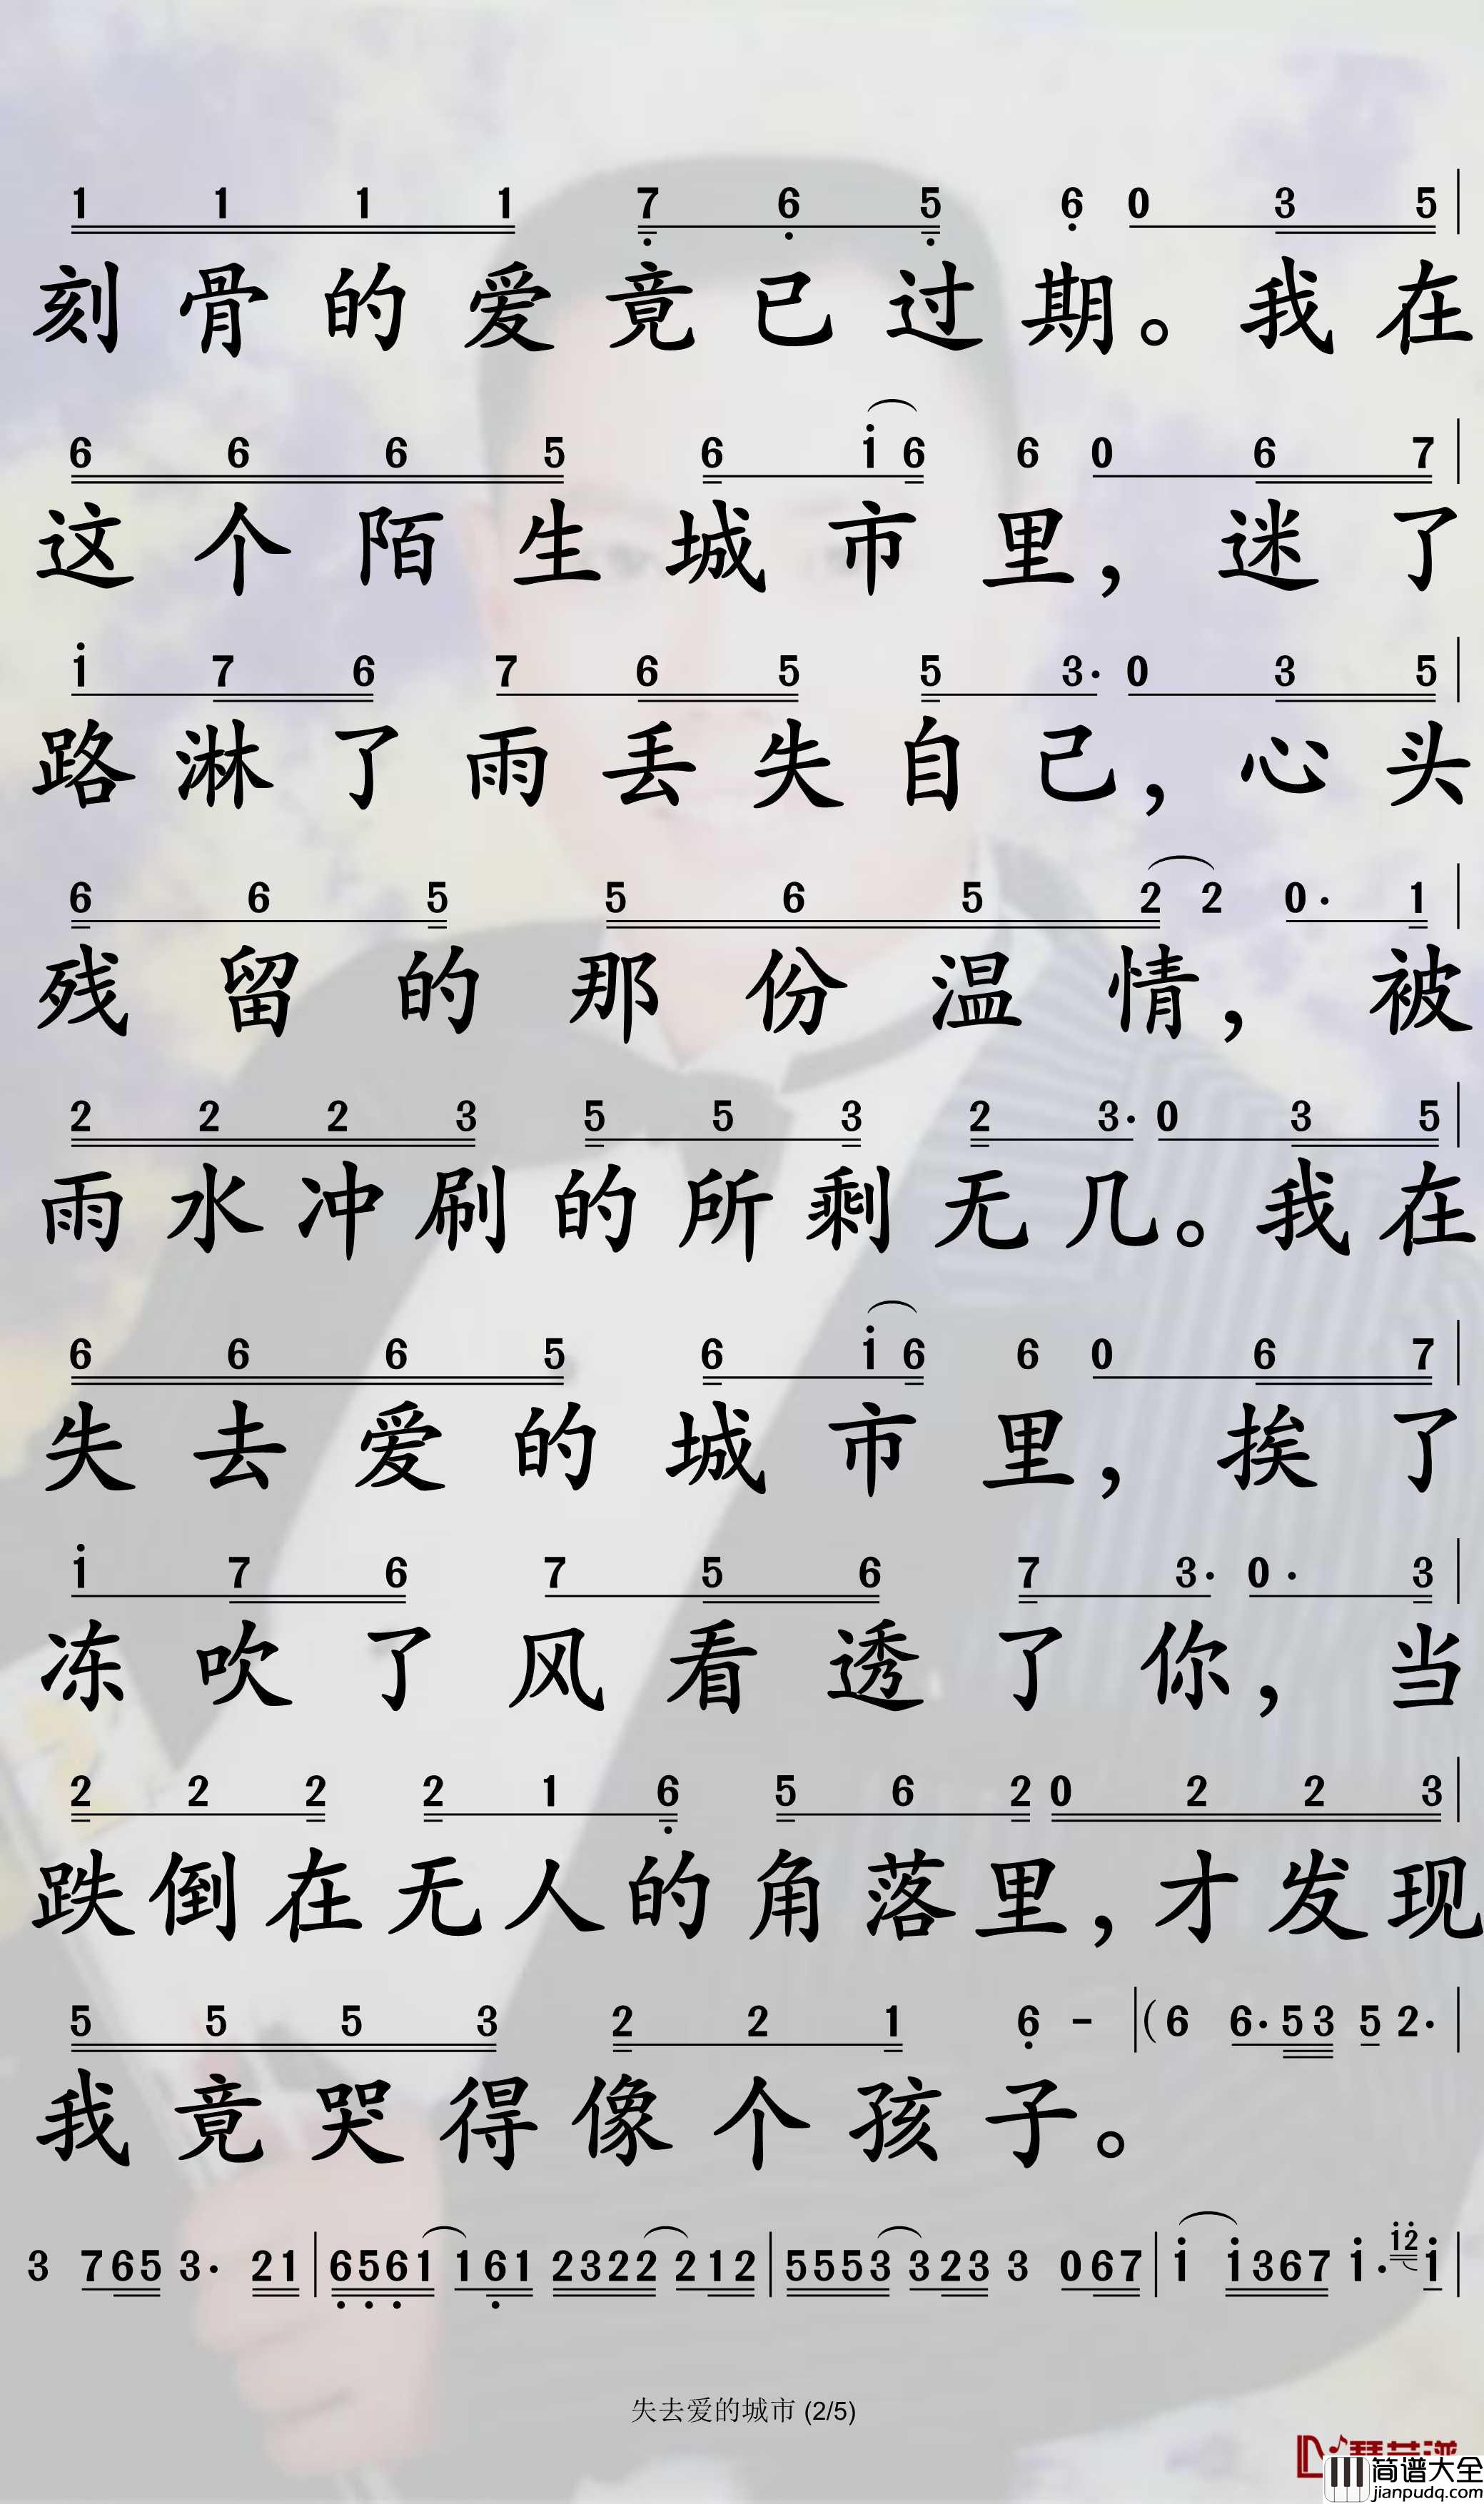 1 1 1 1 7 6 5 6 0 3 5
刻骨的爱竟已过期。我在
6 6 6 5 6 i 6 6 0 6 7
这个陌生城市里，迷了
i 7 6 7 6 5 5 3· 0 3 5
路淋了雨丢失自己，心头
6 6 5 5 6 5 2 2 0· 1
残留的那份温情，被
2 2 2 3 5 5 3 2 3· 0 3 5
雨水冲刷的所剩无几。我在
6 6 6 5 6 i 6 6 0 6 7
失去爱的城市里，挨了
i 7 6 7 5 6 7 3· 0· 3
冻吹了风看透了你，当
2 2 2 2 1 6 5 6 2 0 2 2 3
跌倒在无人的角落里，才发现
5 5 5 3 2 2 1 6 - |(6 6· 5 3 5 2· |
我竟哭得像个孩子。
3 765 3· 21 | 6561 161 2322 212 | 5553 323 3 067 | i i367 i· i2 i |
失去爱的城市 (2/5)
简谱大全
jianpudq.com